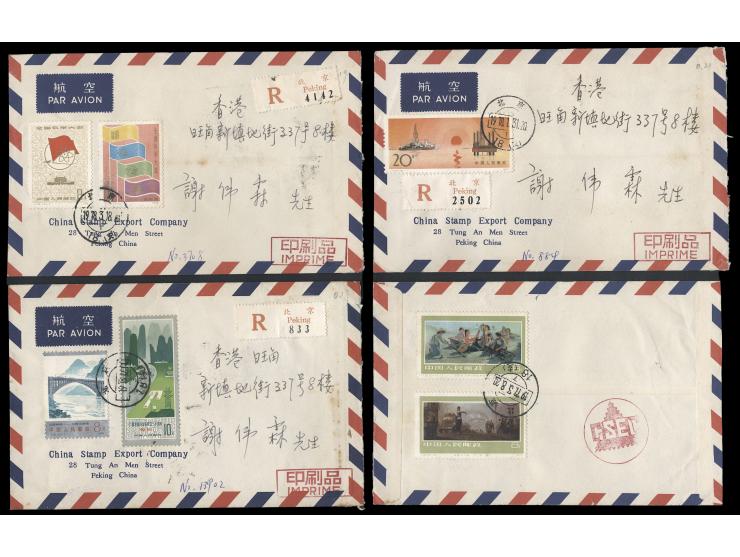 航 空
PAR AVION
R
北 京
Peking
4142
香港
旺角新填地街337号8楼
謝 伟 森 先生
China Stamp Export Company
28 Tung An Men Street
Peking China
No. 3768
印刷品
IMPRIME
航 空
PAR AVION
20
中国人民邮政
北京
R
北 京
Peking
2502
香港
旺角新填地街337号8楼
謝 伟 森 先生
China Stamp Export Company
28 Tung An Men Street
Peking China
印刷品
IMPRIME
航 空
PAR AVION
R
北 京
Peking
833
香港 旺角
新填地街337号8楼
謝 伟 森 先生
中国人民邮政
8分
10
China Stamp Export Company
28 Tung An Men Street
Peking China
No. 13902
印刷品
IMPRIME
中国人民邮政
中国人民邮政